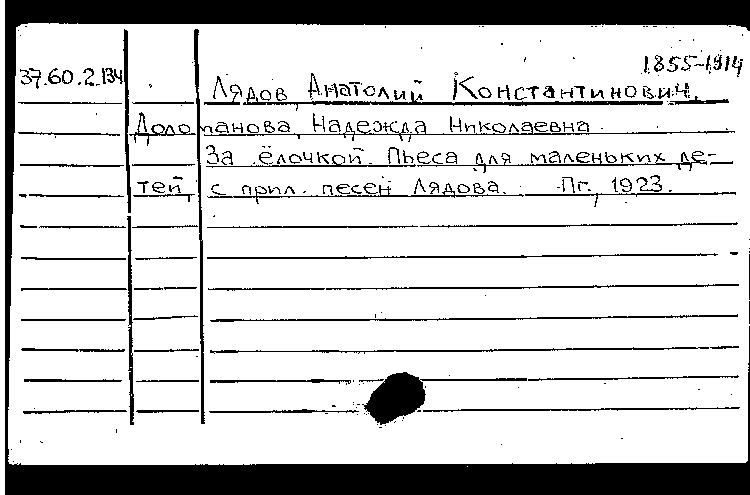 1855-1914
37.60.2.134
Лядов, Анатолий Константинович.
Доломанова, Надежда Николаевна.
За ёлочкой. Пьеса для маленьких де-
тей, с прил. песен Лядова. Пг., 1923.